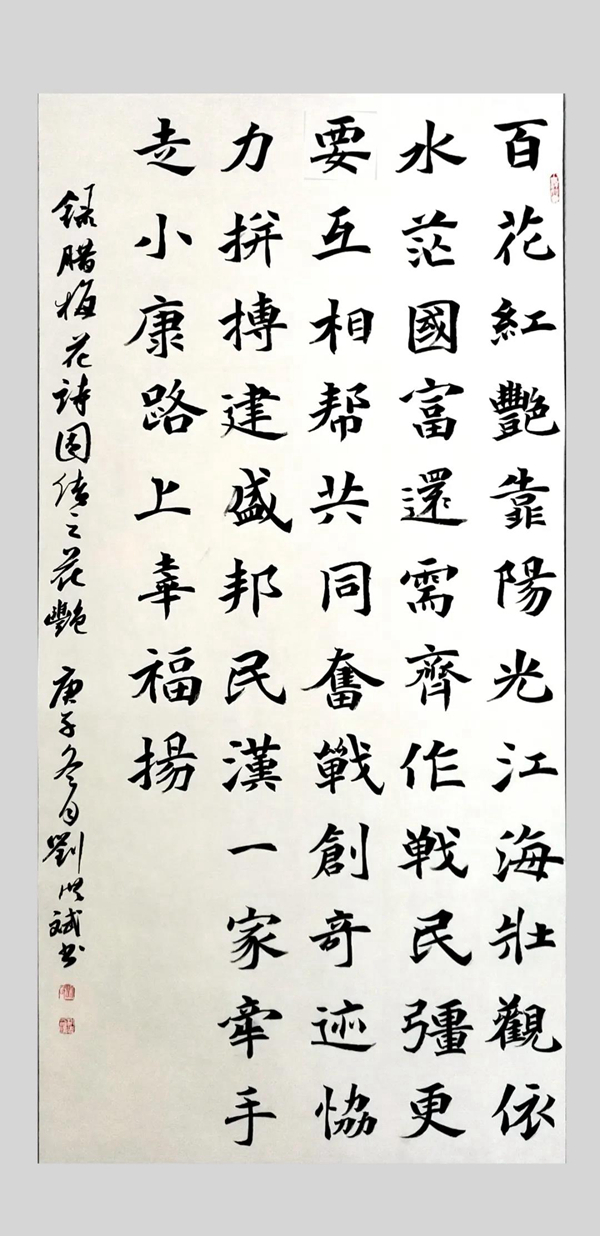 百花紅艷靠陽光江海壯觀依
水茫國富還需齊作戰民彊更
要互相帮共同奮戰創奇迹恊
力拼搏建盛邦民漢一家牽手
走小康路上幸福揚
錄腊梅花詩園佳之花艷 庚子冬月劉洪斌书